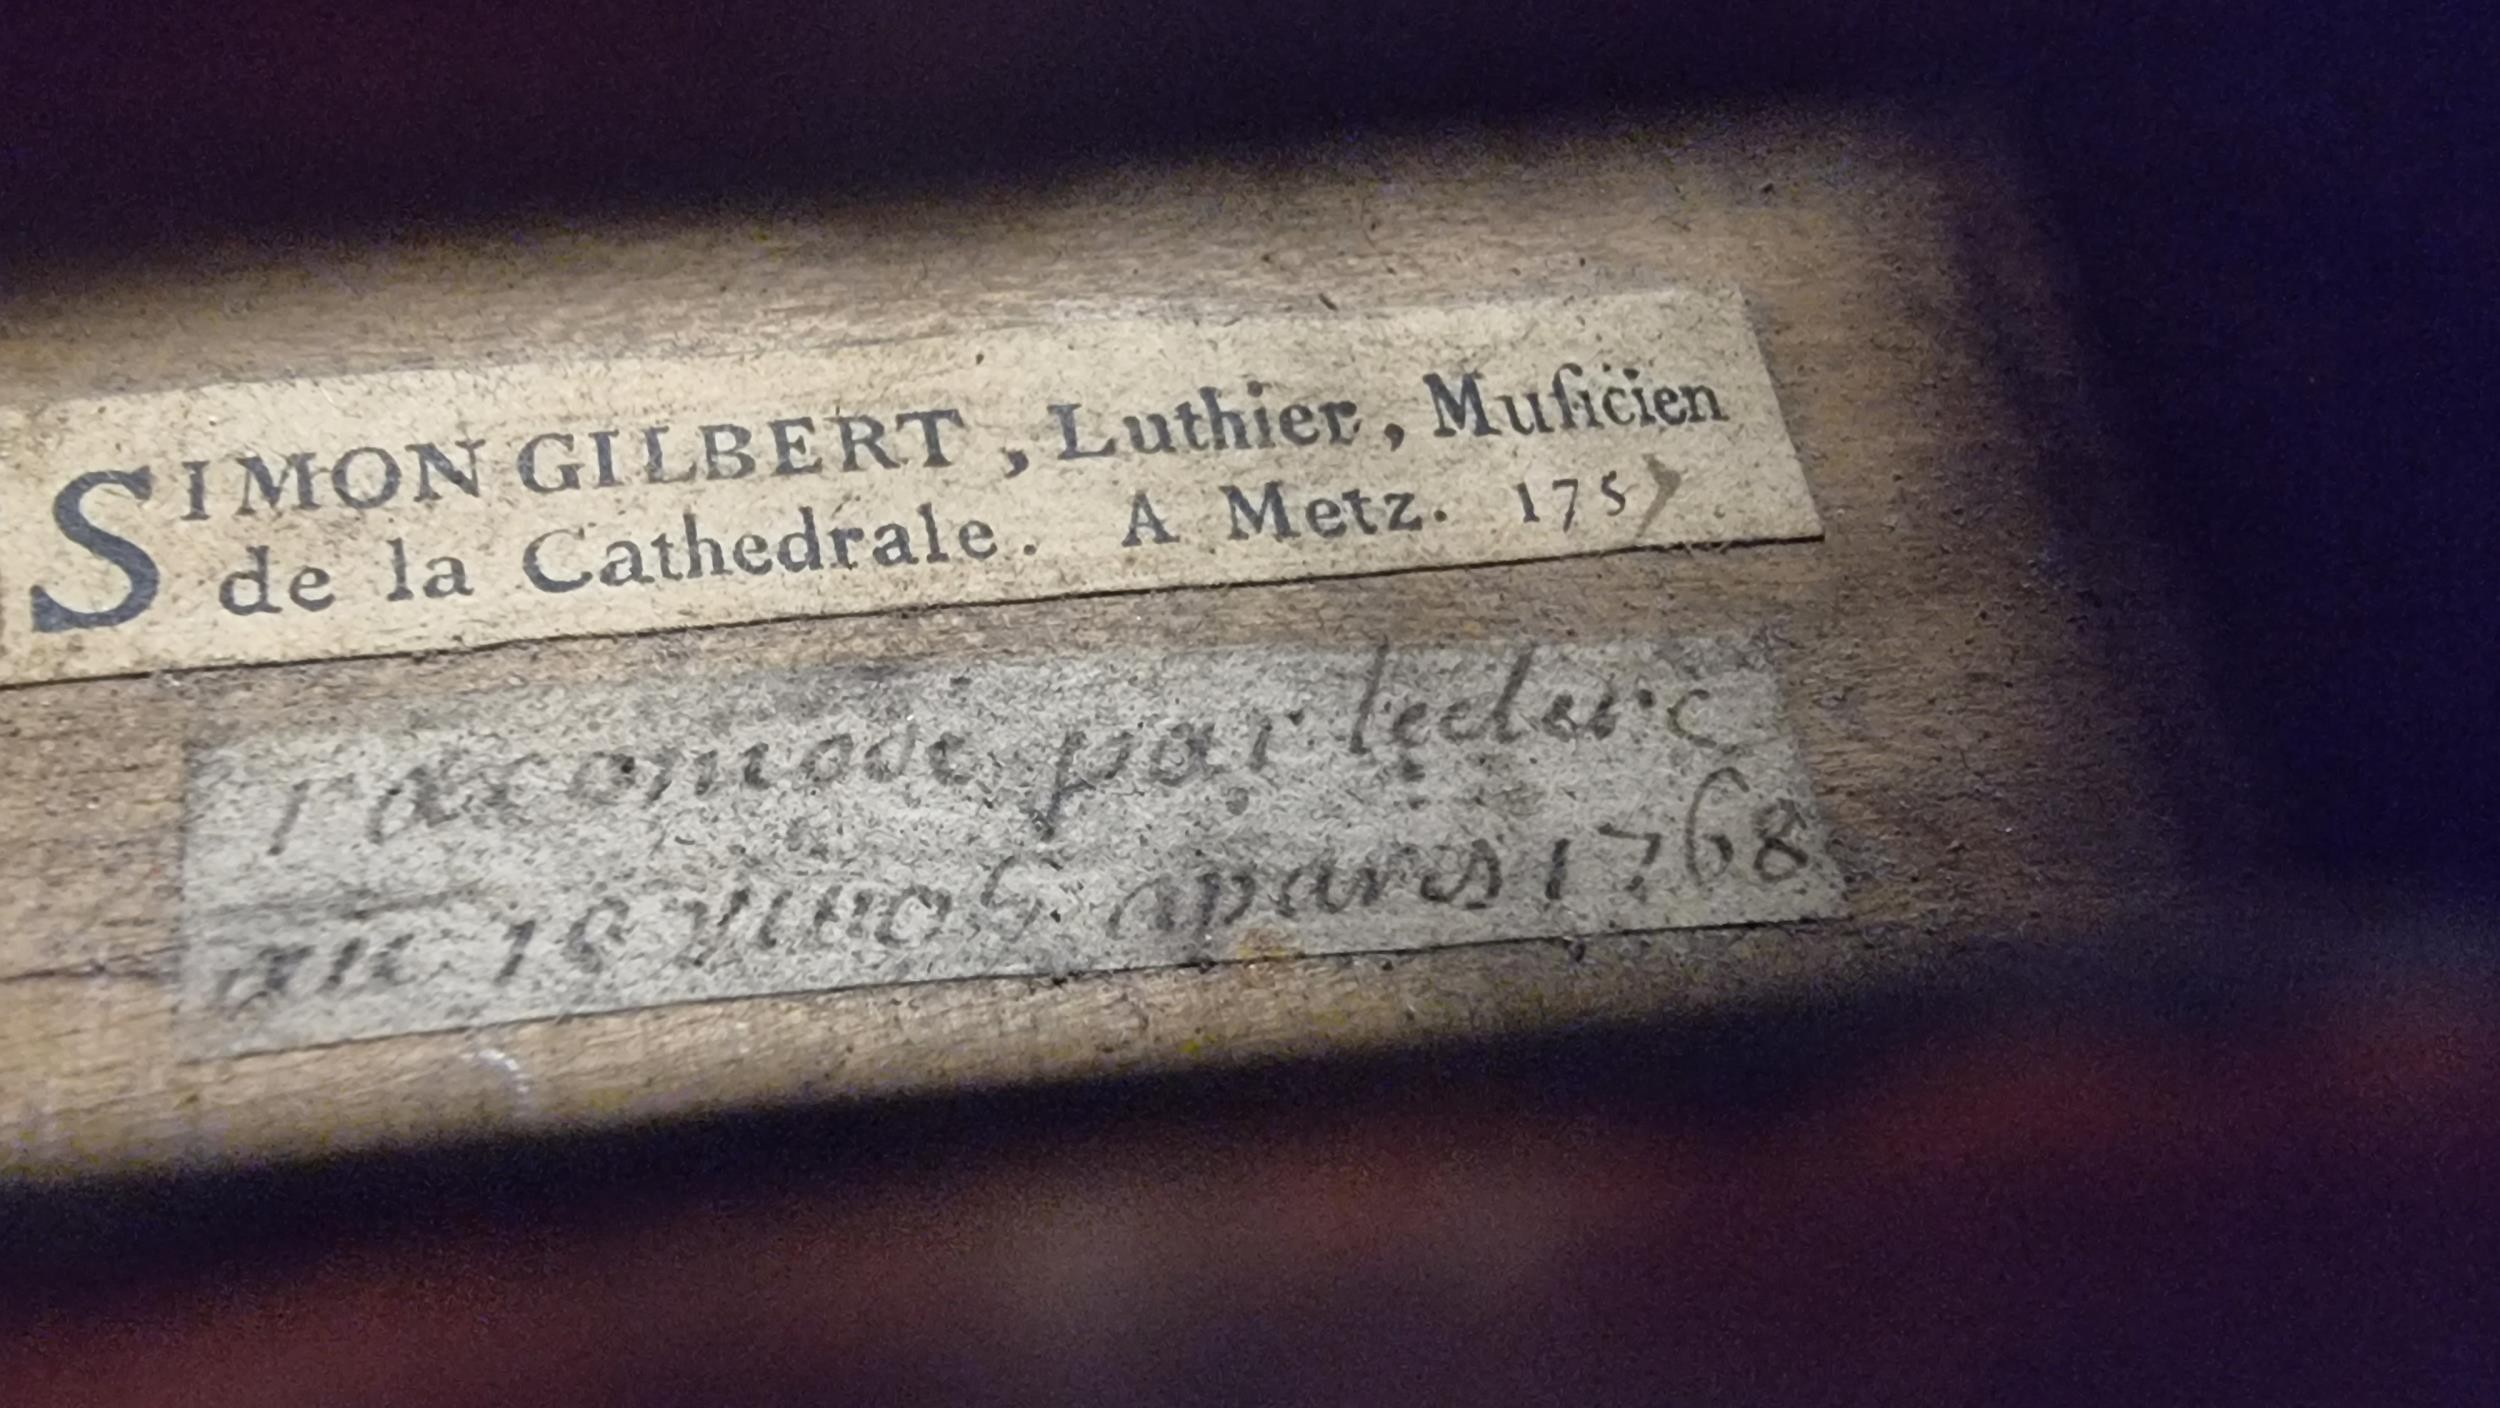 SIMON GILBERT, Luthier, Muſicien
de la Cathedrale. A Metz. 1757
racomode par leclerc
au aparis 1768